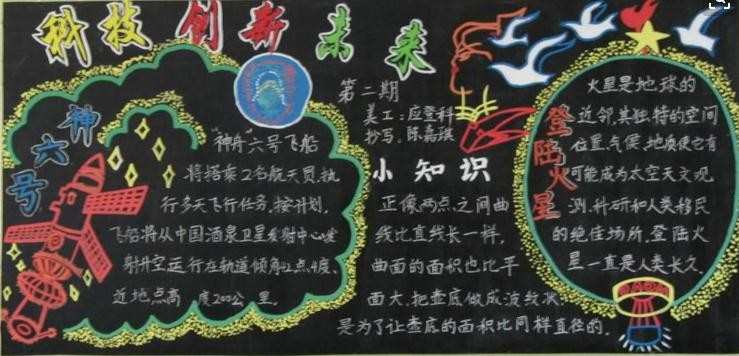 科技创新未来
神六号
第二期
美工:应登科
抄写:陈嘉琪
"神舟"六号飞船
将搭乘2名航天员,执
行多天飞行任务,按计划,
飞船将从中国酒泉卫星发射中心发
射升空运行在轨道倾角42点4度、
近地点高 度200公里.
小知识
正像两点之间曲
线比直线长一样,
曲面的面积也比平
面大.把壶底做成波纹状
是为了让壶底的面积比同样直径的.
登陆火星
火星是地球的
近邻,其独特的空间
位置,气候,地质使它有
可能成为太空天文观
测,科研和人类移民
的绝佳场所.登陆火
星一直是人类长久.